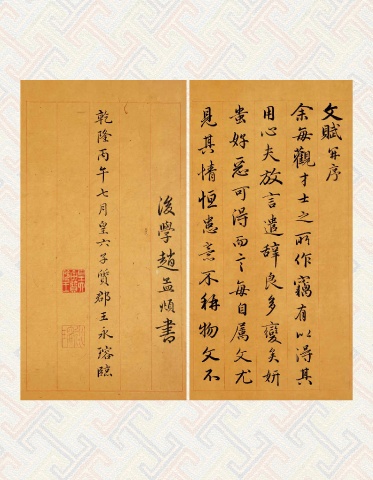 文賦并序
余每觀才士之所作竊有以得其
用心夫放言遣辭良多變矣妍
蚩好惡可得而言每自属文尤
見其情恒患意不稱物文不
後學趙孟頫書
乾隆丙午七月皇六子質郡王永瑢臨